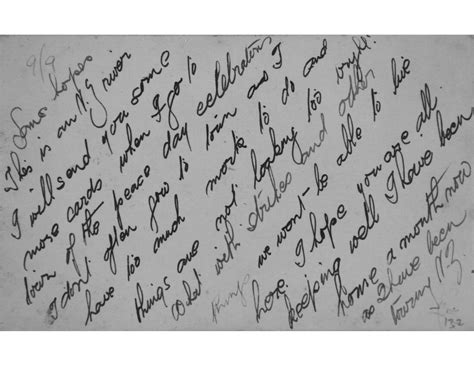 9/9
Some hopes
This is an N.Z river
I will send you some
more cards when I go to
town of the peace day celebrations
I don't often go to town as I
have too much work to do and
things are not looking too bright
what with strikes and other
things we wont be able to live
here I hope you are all
keeping well I have been
home a month now
as I have been
touring N.Z
132